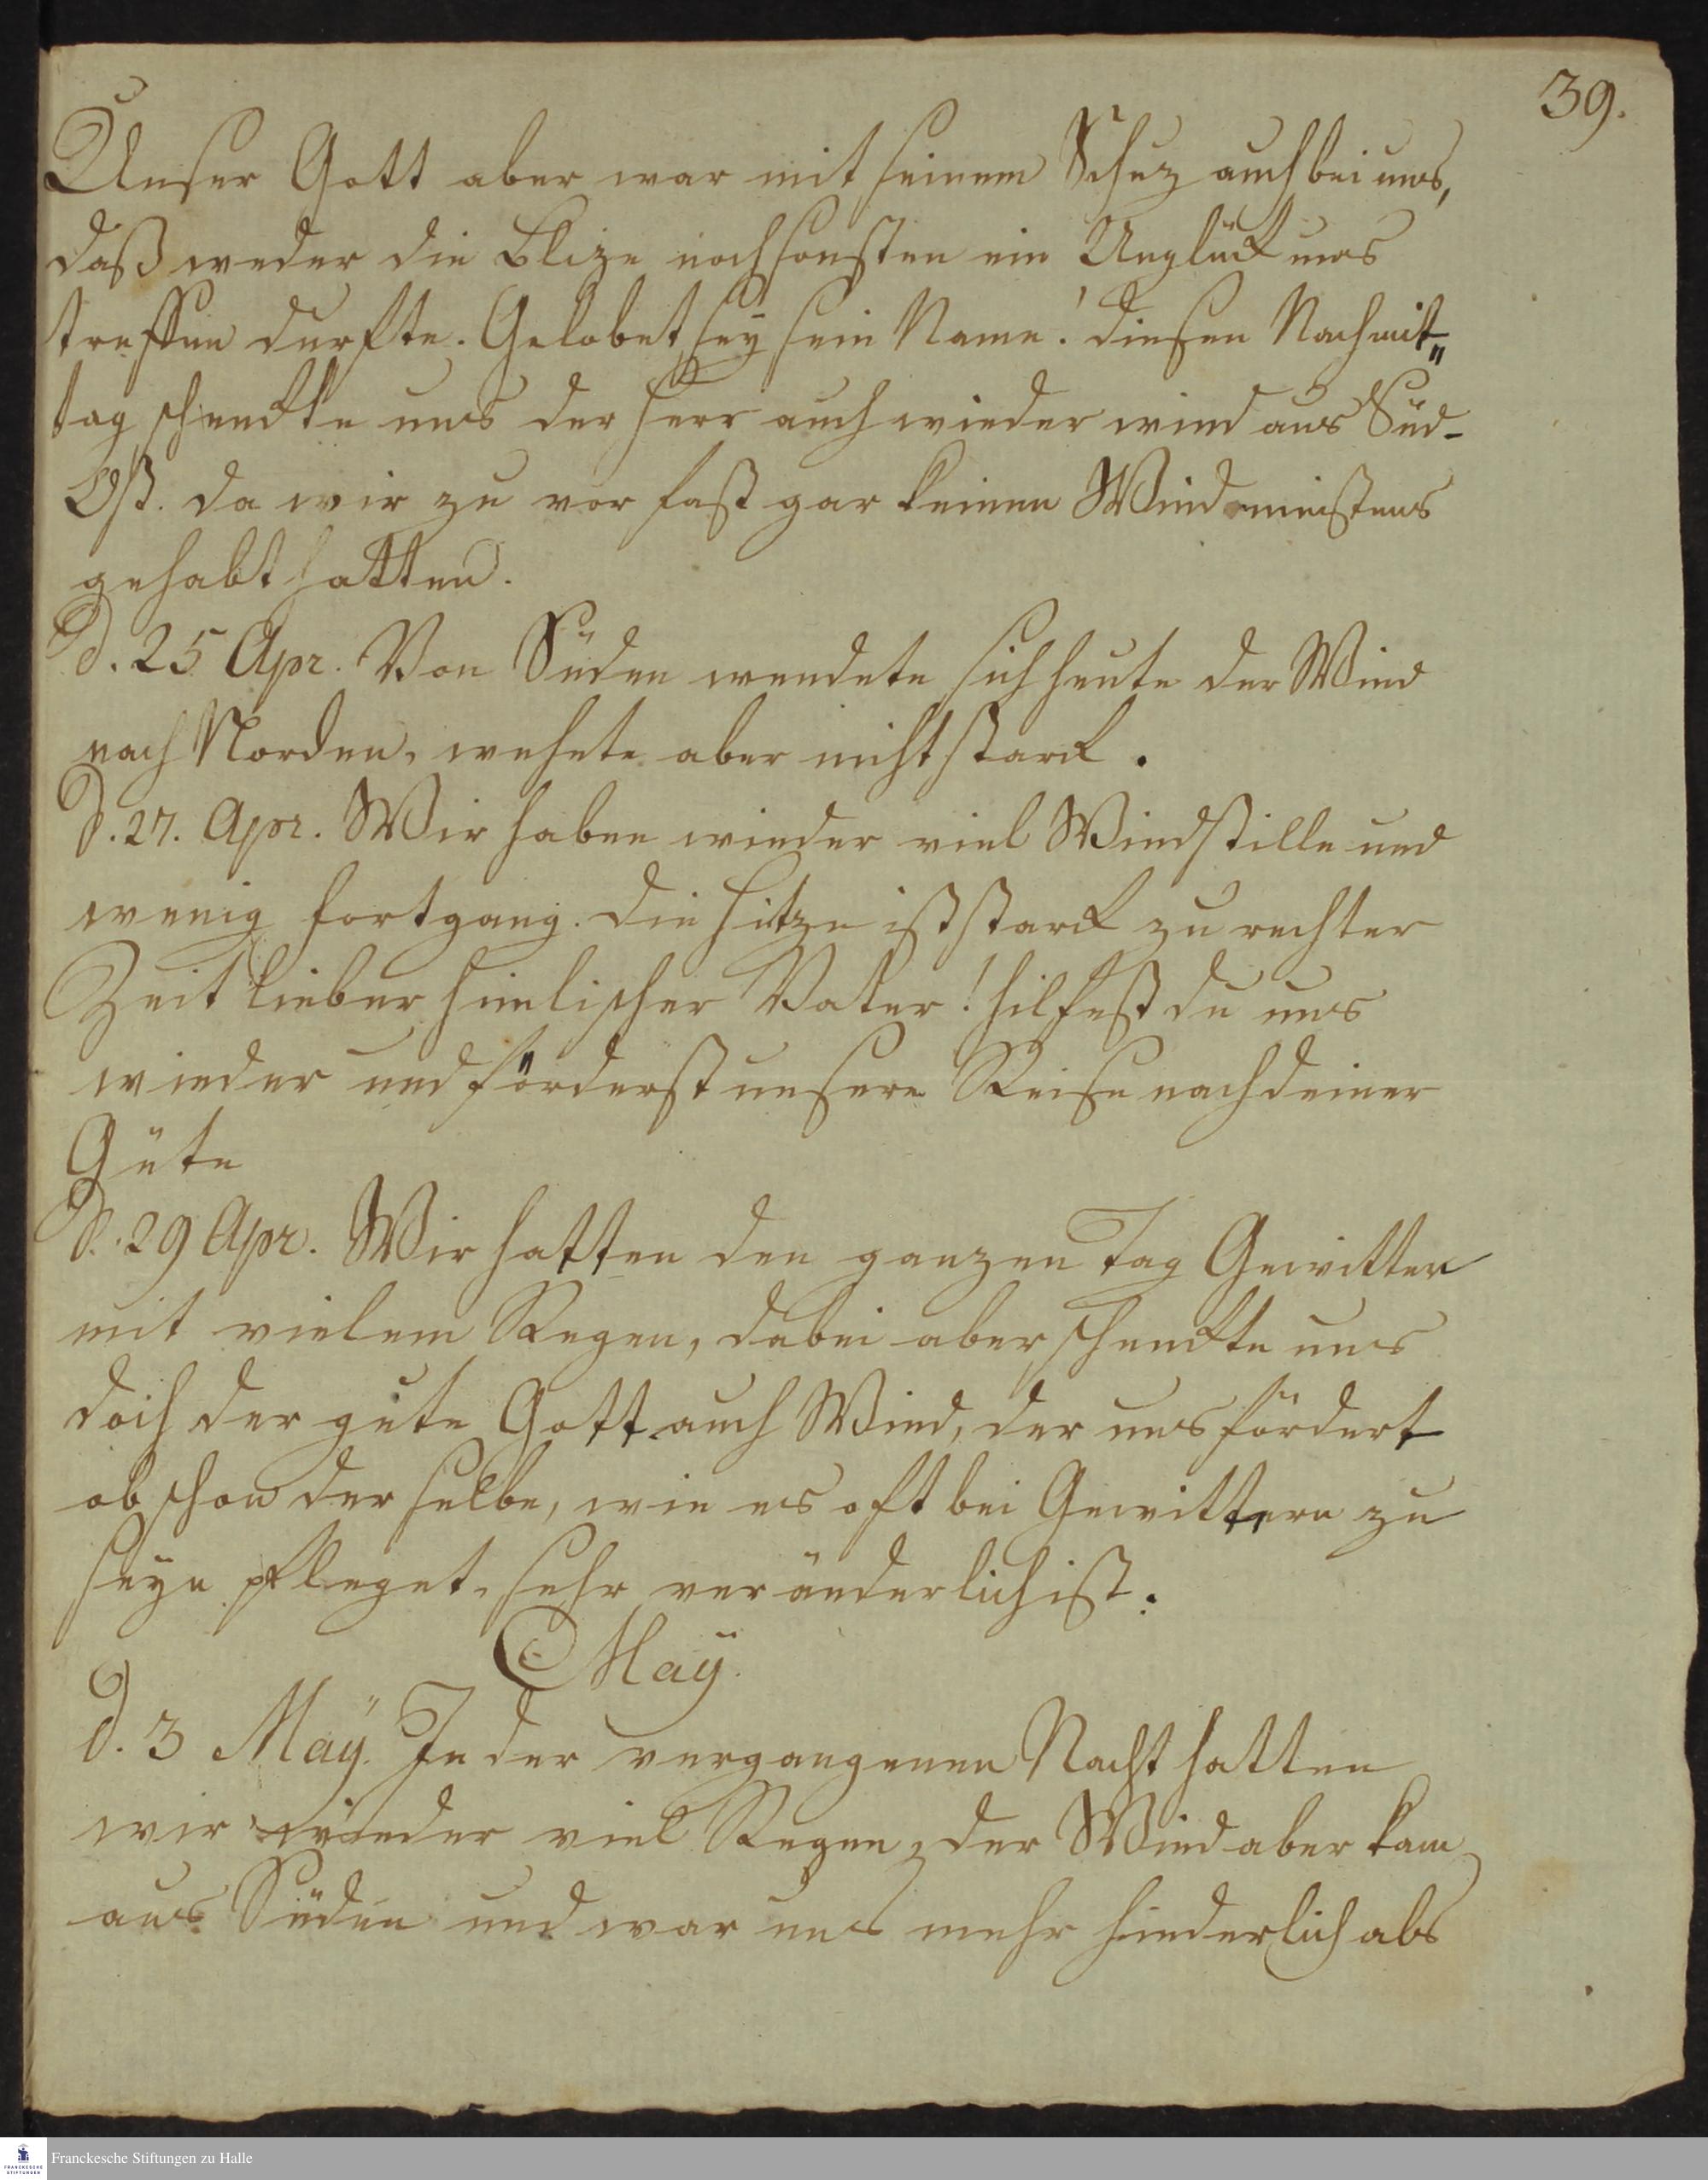 39.
Unser Gott aber war mit seinem Schuz auch bei uns,
daß weder die Blize noch sonsten ein Unglück uns
treffen durfte. Gelobet sey sein Name! diesen Nachmit„
tag schenckte uns der Herr auch wieder wind aus Süd-
Ost. da wir zu vor fast gar keinen Wind meistens
gehabt hatten.
d. 25 Apr. Von Süden wendete sich heute der Wind
nach Norden, wehete aber nicht starck.
d. 27. Apr. Wir haben wieder viel Windstille und
wenig fortgang. die Hitze ist starck zu rechter
Zeit lieber himlischer Vater! hilfest du uns
wieder und förderst unsere Reise nach deiner
Güte
d. 29 Apr. Wir hatten den ganzen Tag Gewitter
mit vielem Regen, dabei aber schenckte uns
doch der gute Gott auch Wind, der uns fördert
ob schon der selbe, wie es oft bei Gewittern zu
seyn pfleget, sehr veränderlich ist.
May.
d. 3 May. In der vergangenen Nacht hatten
wir wieder viel Regen, der Wind aber kam
aus Süden und war uns mehr hinderlich als
Franckesche Stiftungen zu Halle
FRANCKESCHE
STIFTUNGEN